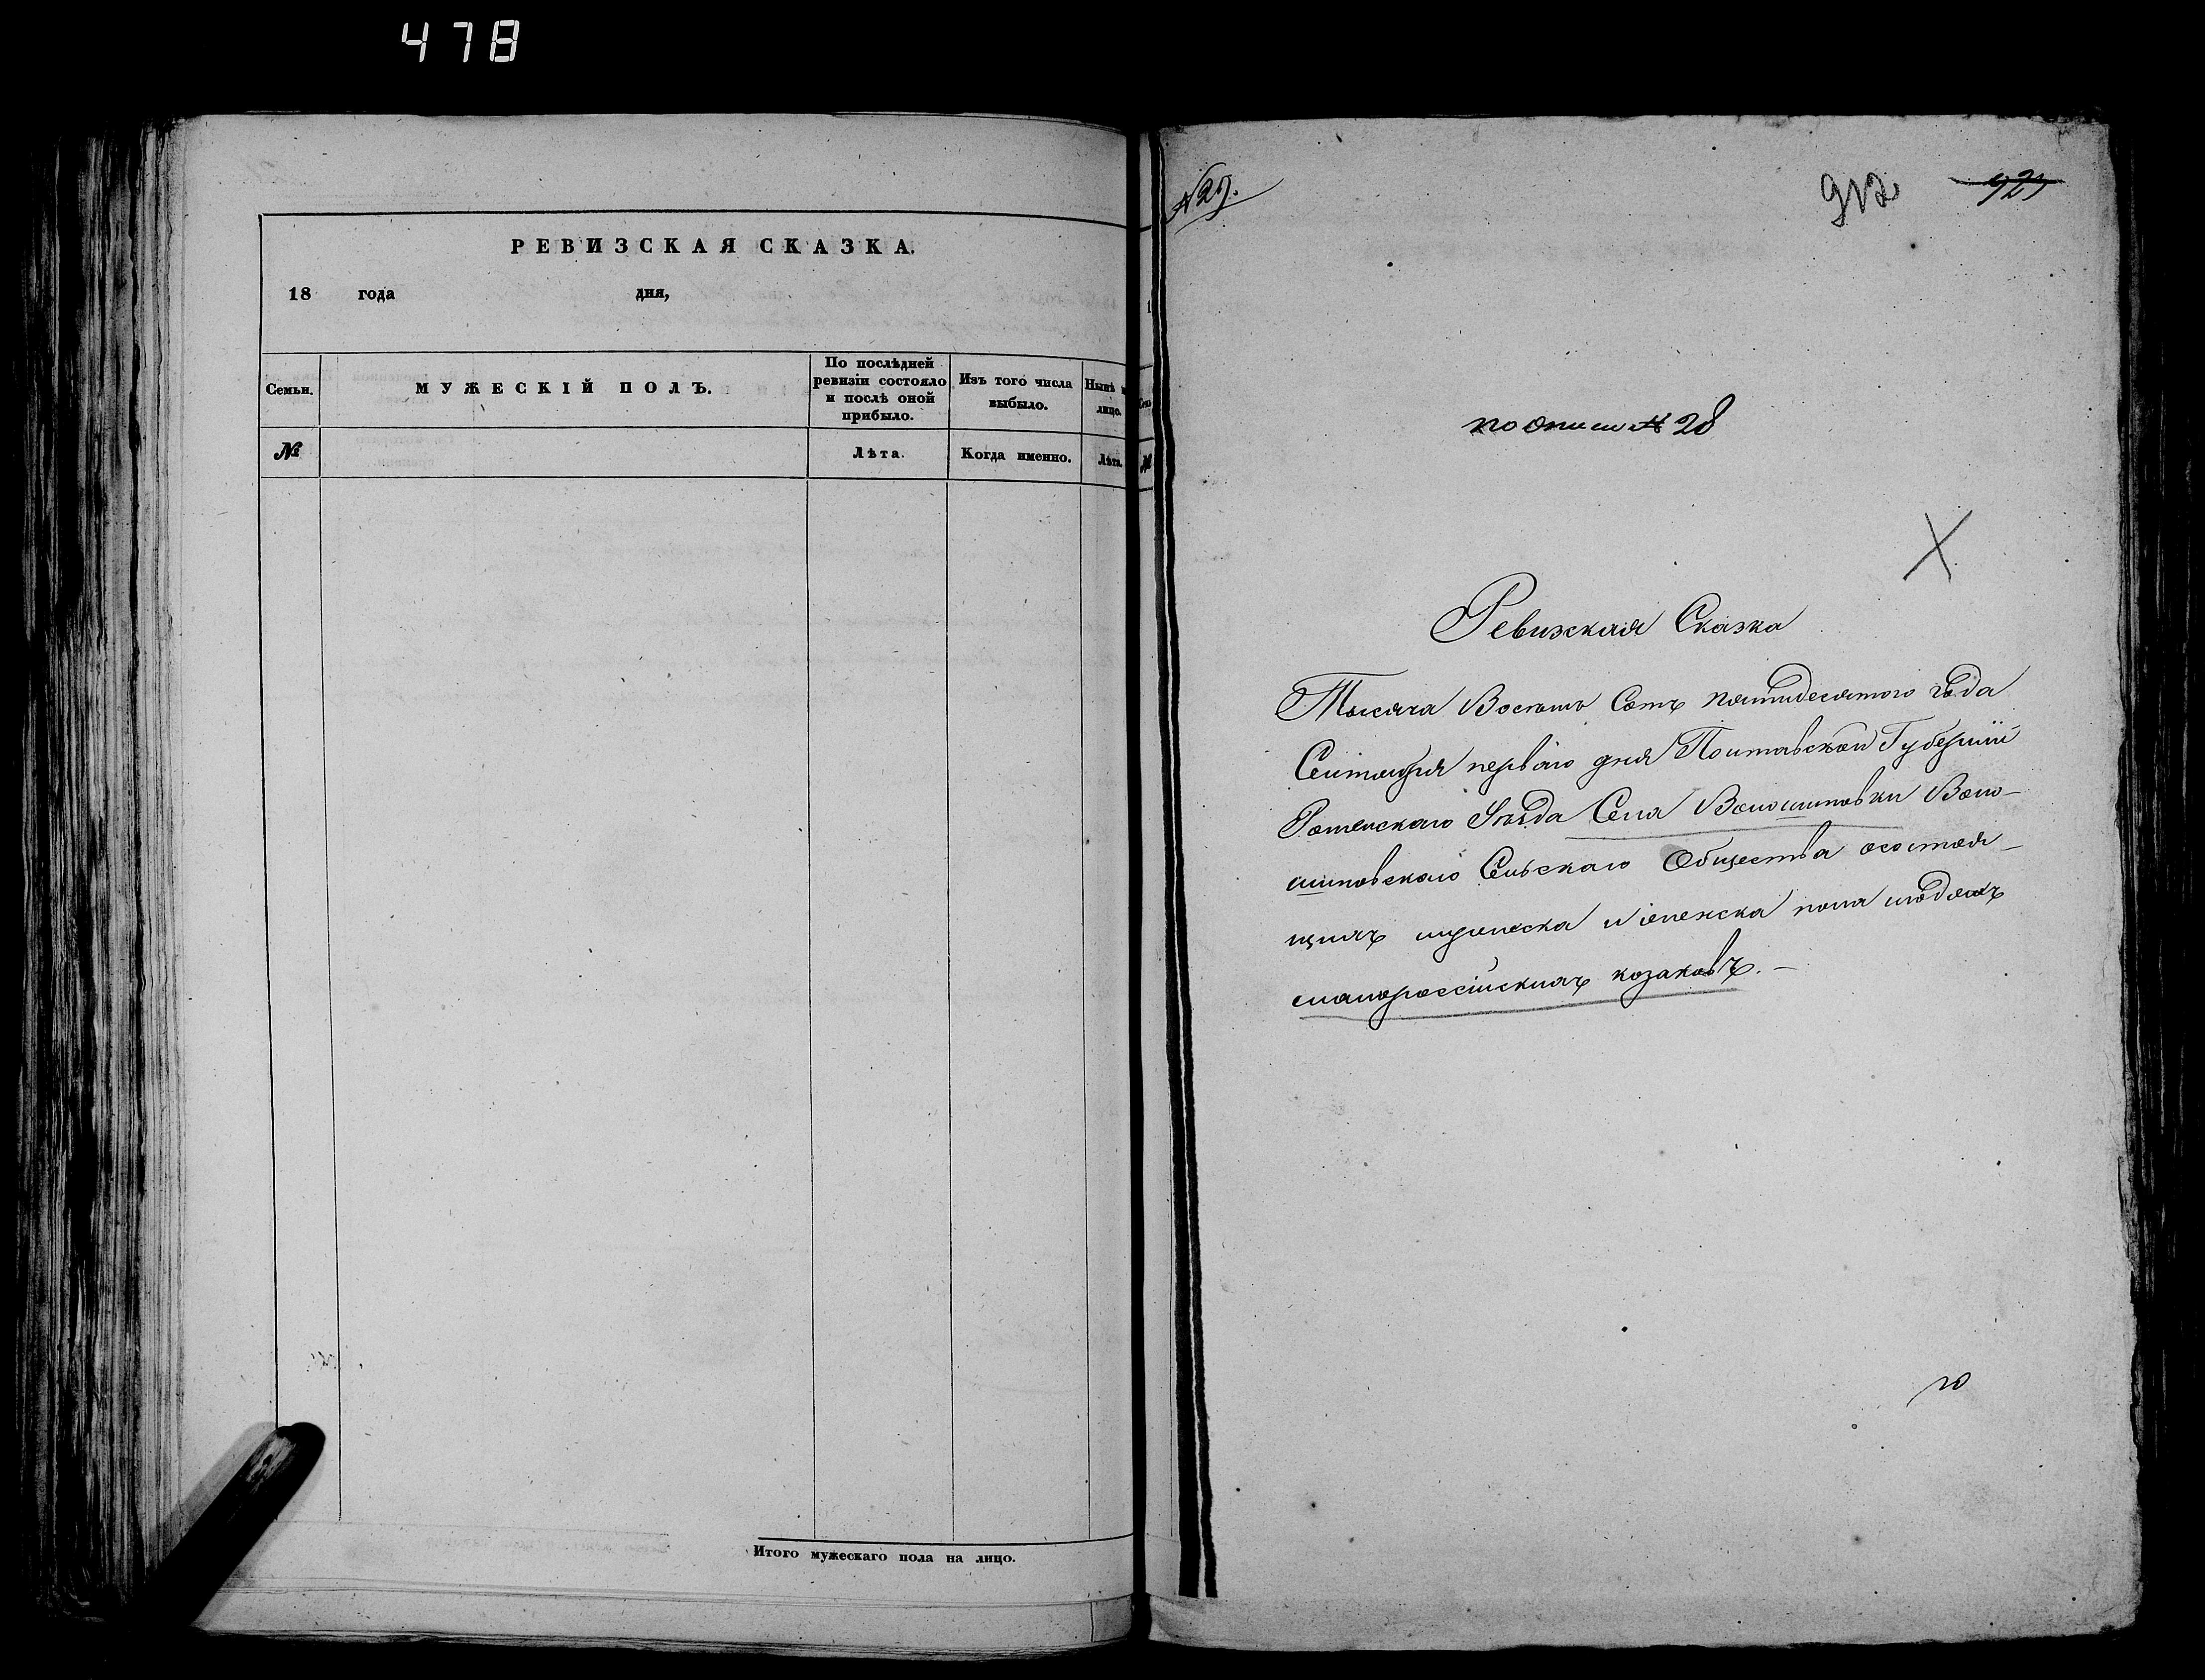 478
РЕВИЗСКАЯ СКАЗКА.
18 года дня,
Семьи.
МУЖЕСКІЙ ПОЛЪ.
По послѣдней ревизіи состояло и послѣ оной прибыло.
Изъ того числа выбыло.
Нынѣ
лицо.
№
Лѣта.
Когда именно.
Лѣта.
Итого мужескаго пола на лицо.
№ 27.
912
921
по описи № 28
Ревизская Сказка
Тысяча Восемь Сотъ пятидесятого года
Сентября перваго дня Полтавской Губерніи
Роменскаго Уѣзда Села Волошиновки Воло-
шиновскаго Сельскаго Общества осостоя-
щихъ мужеска и женска пола людяхъ
малороссійскихъ козаковъ.-